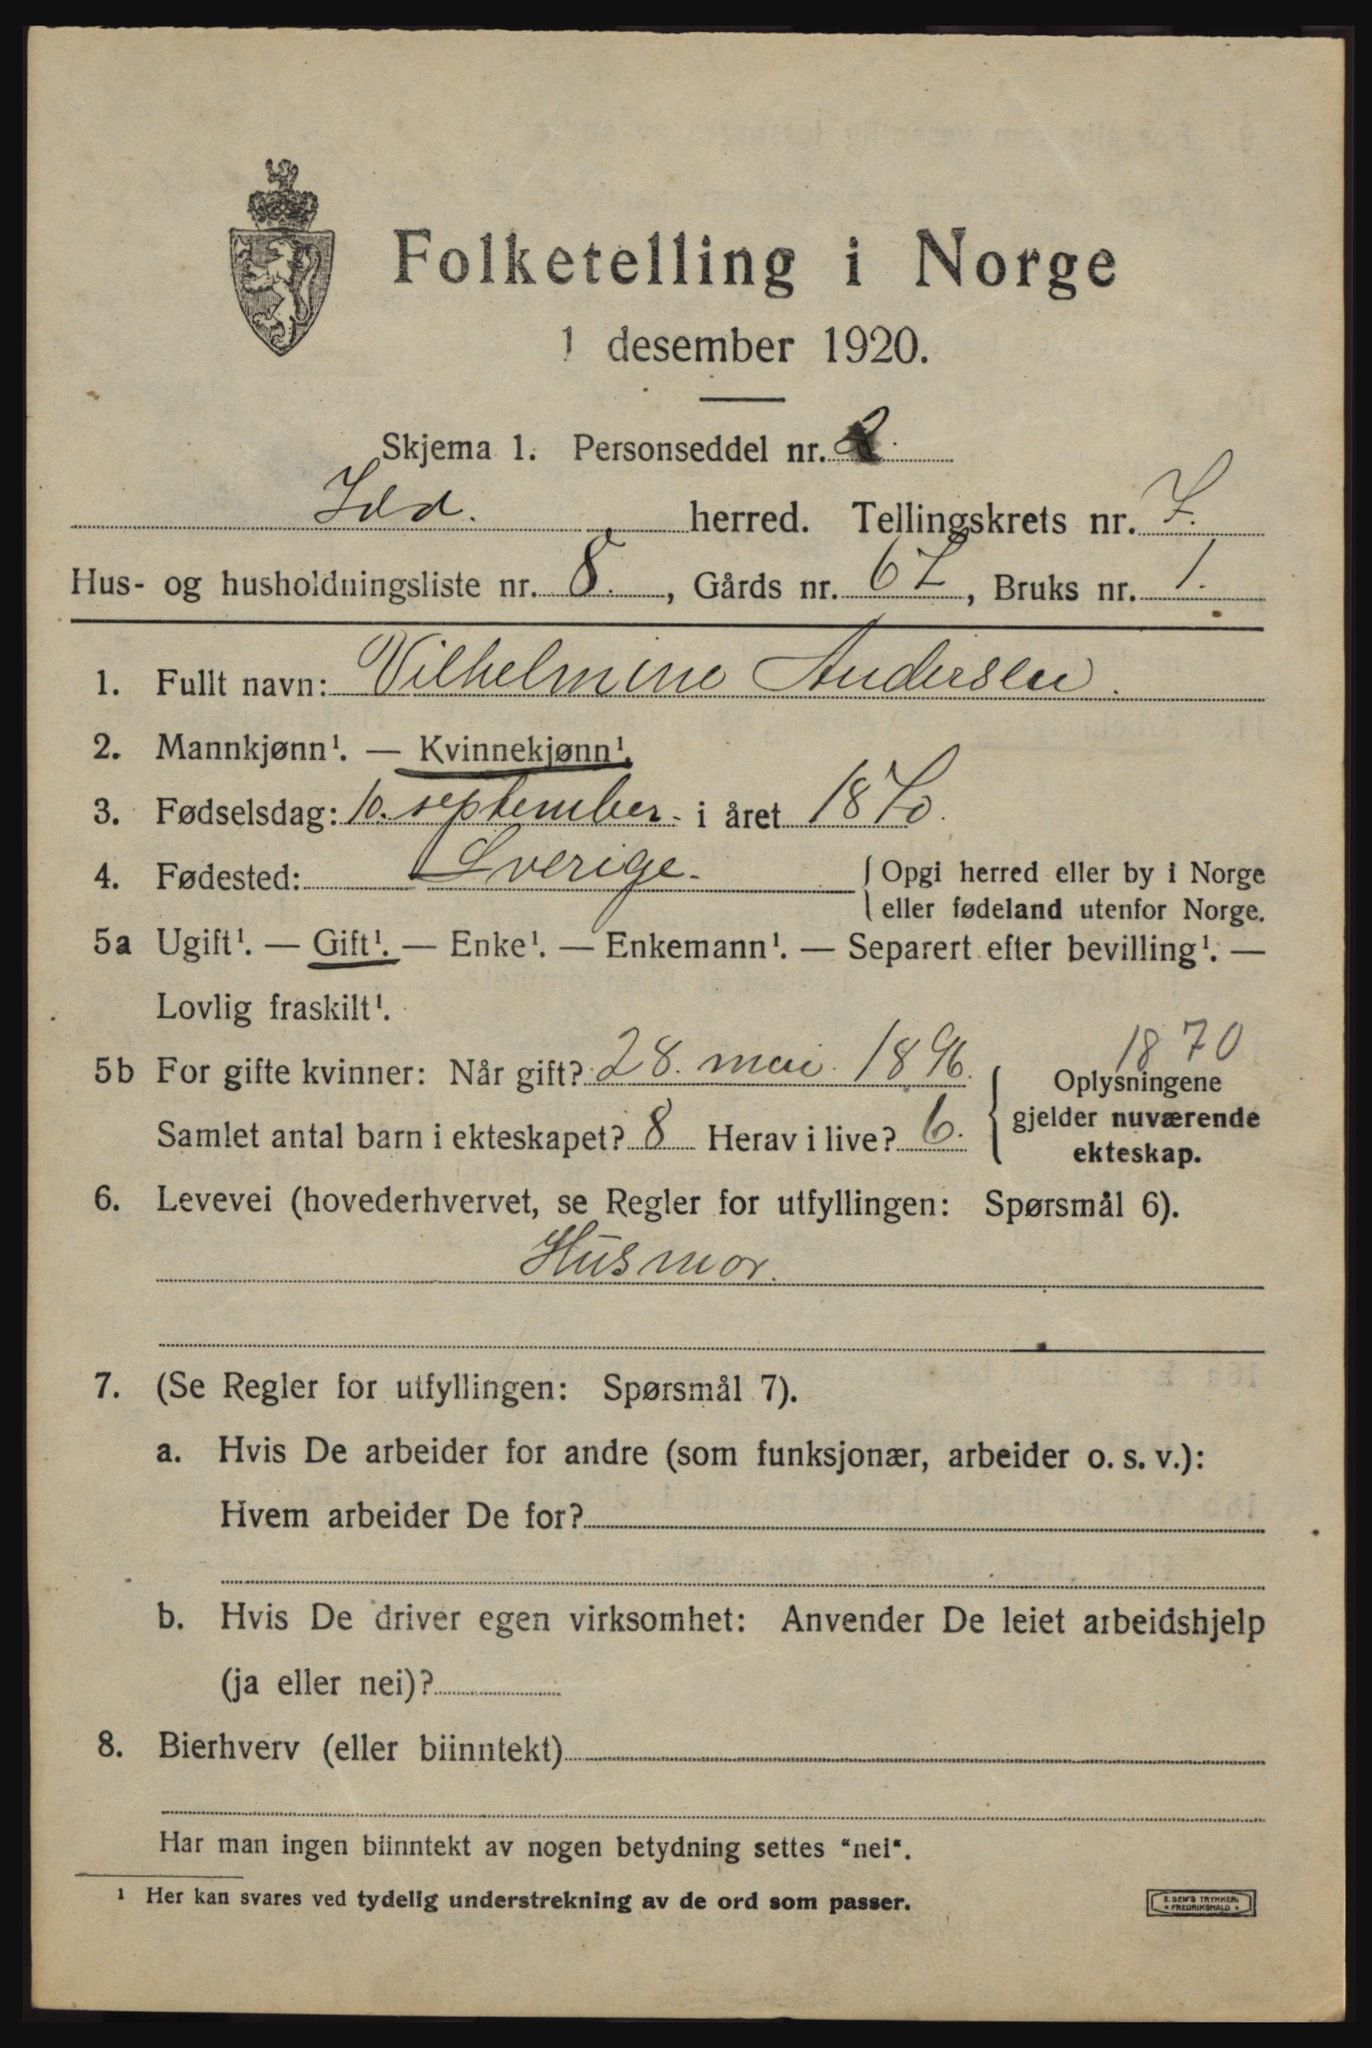 Folketelling i Norge
1 desember 1920.
Skjema 1. Personseddel nr. 2.
Idd. herred. Tellingskrets nr. 7.
Hus- og husholdningsliste nr. 8., Gårds nr. 67, Bruks nr. 1.
1. Fullt navn: Vilhelmine Andersen.
2. Mannkjønn¹. — Kvinnekjønn¹.
3. Fødselsdag: 10. september. i året 1870.
4. Fødested: Sverige. { Opgi herred eller by i Norge
eller fødeland utenfor Norge.
5a Ugift¹. — Gift¹. — Enke¹. — Enkemann¹. — Separert efter bevilling¹. —
Lovlig fraskilt¹.
1870
5b For gifte kvinner: Når gift? 28. mai. 1896. { Oplysningene
gjelder nuværende
Samlet antal barn i ekteskapet? 8 Herav i live? 6.
ekteskap.
6. Levevei (hovederhvervet, se Regler for utfyllingen: Spørsmål 6).
Husmor.
7. (Se Regler for utfyllingen: Spørsmål 7).
a. Hvis De arbeider for andre (som funksjonær, arbeider o. s. v.):
Hvem arbeider De for?
b. Hvis De driver egen virksomhet: Anvender De leiet arbeidshjelp
(ja eller nei)?
8. Bierhverv (eller biinntekt)
Har man ingen biinntekt av nogen betydning settes “nei“.
¹ Her kan svares ved tydelig understrekning av de ord som passer.
E. SEM'S TRYKKERI
* FREDRIKSHALD *